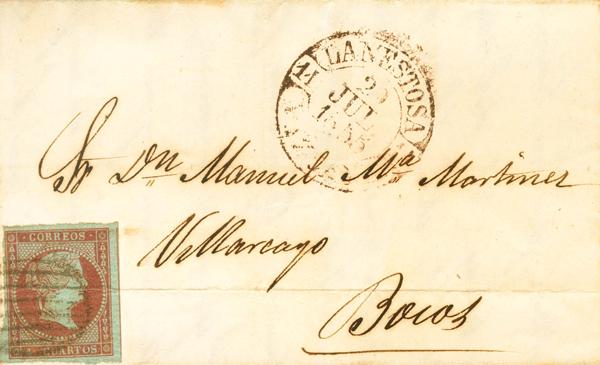 LANESTOSA
JUL
Sr Dn Manuel Ma Martinez
Villarcayo
Bocos
CORREOS
CUARTOS